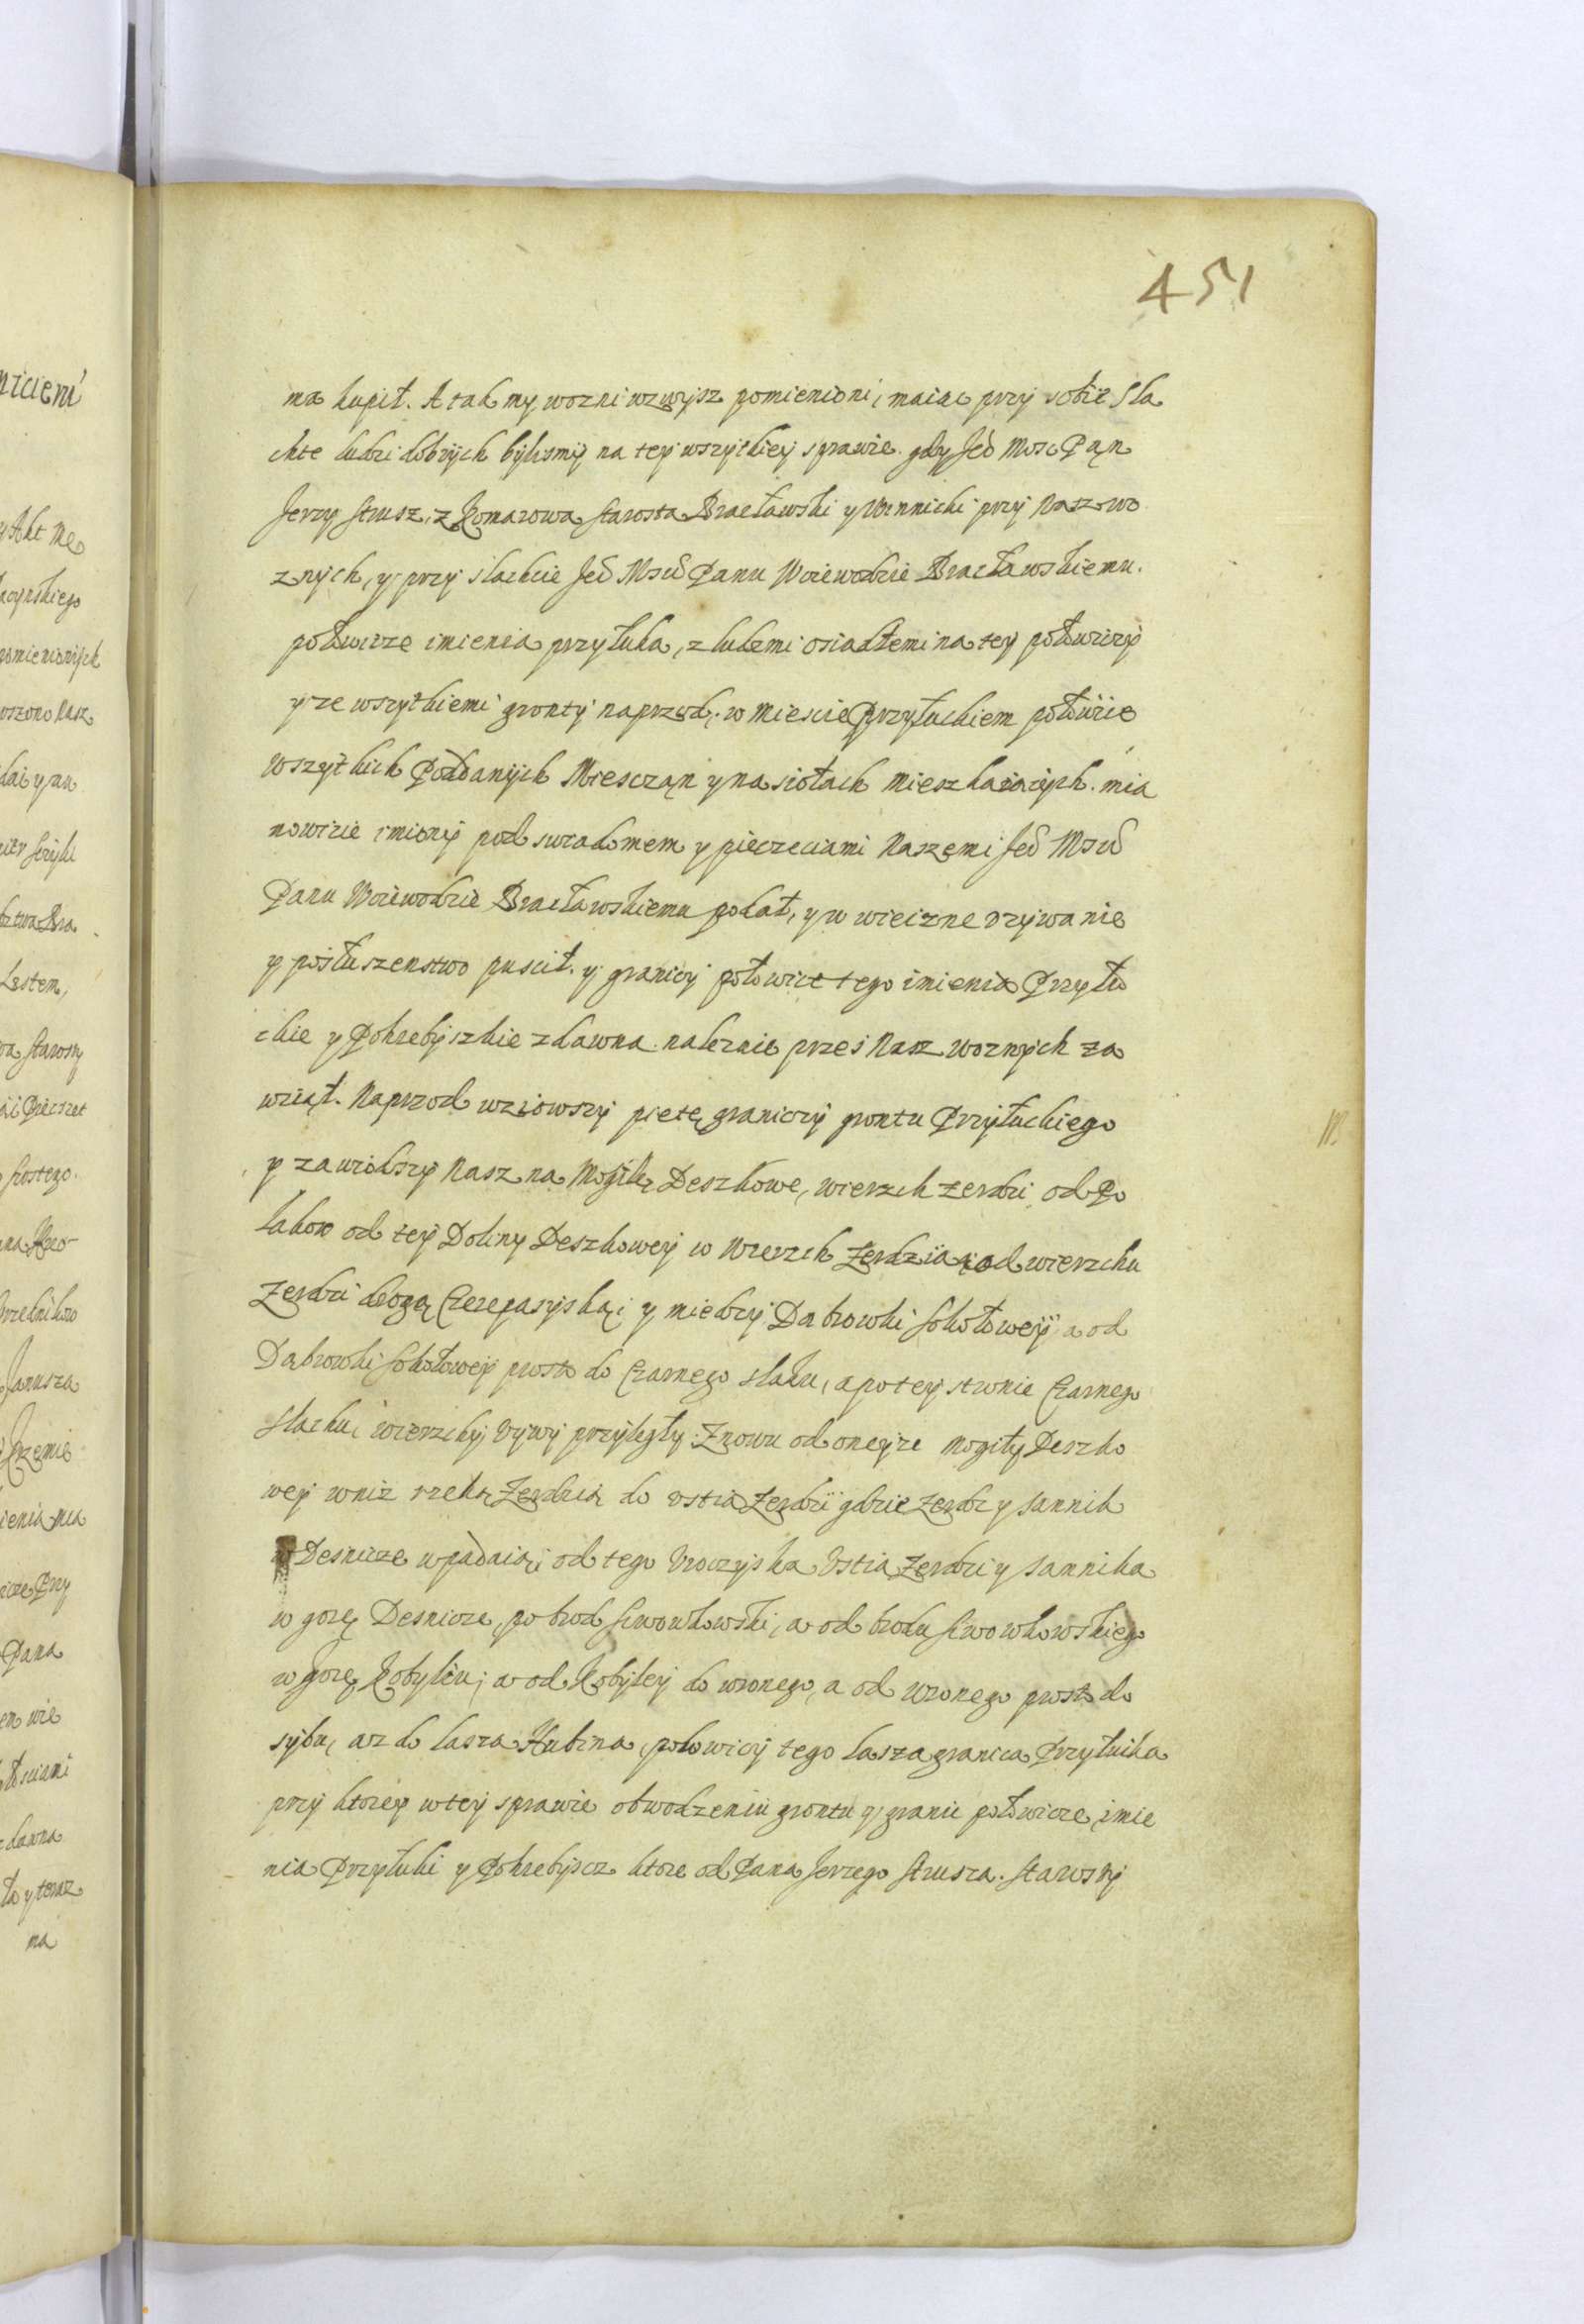 451
ma kupił. A tak my wozni wzwysz pomienioni, maiąc przy sobie sla
chte ludzi dobrych bylismy na tey wszytkiey sprawie. gdy Jeo Mosc Pan
Jerzy Strusz, z Komarowa Starosta Bracławski y Winnicki przy Nasz wo
znych, y przy slachcie Jeo Mscu Panu Woiewodzie Bracławskiemu.
połowicze imienia przyłuka, z ludzmi osiadłemi na tey połowicy
y ze wszytkiemi gronty naprzod, w miescie Przyłuckiem połowie
wszytkich Poddanych Miesczan y na siołach mieszkaiacych. mia
nowicie imiony pod swiadomem y pieczeciami Naszemi Jeo Mscu
Panu Woiewodzie Bracławskiemu podał, y w wieczne vzywanie
y posłuszenstwo puscił. y granicy połowice tego imienia Przyłu
ckie y Pohrebyszkie zdawna należnie przes Nasz woznych za
wziął. Naprzod wziowszy pietę granicy grontu Przyłuckiego
y zawiodszy Nasz na Mogilę Deszkowe, wierzch Zerdzi, od Po
lakow od tey Doliny Deszkowey w Wierzch Zerdzia, od wierzchu
Zerdzi drogą Czerepasyską, y miedzy Dabrowki Sokołowey a od
Dabrowki Sokołowey prosto do Czarnego slaku, a po tey stronie Czarnego
Slachu, wierzchy Vywy przyległy. Znowu od oneyze mogiły Deszko
wey wniz rzeką Zerdzią do vstia Zerdzi gdzie Zerdz y Sannik
w Desnicze wpadaią, od tego Vroczyska Vstia Zerdzi y Sannika
w gorę Desnicze, po brod Siwowkowski, a od brodu Siwowkowskiego
w gorę Kobyliu, a od Kobyley do wronego, a od wronego prosto do
sybu, az do lasza Hubina, połowicy tego lasza granica Przyłucka
przy ktorey w tey sprawie obwodzeniu grontu y granic połowicze imie
nia Przyłuki y Pohrebyscz ktore od Pana Jerzego Strusza. Starosty